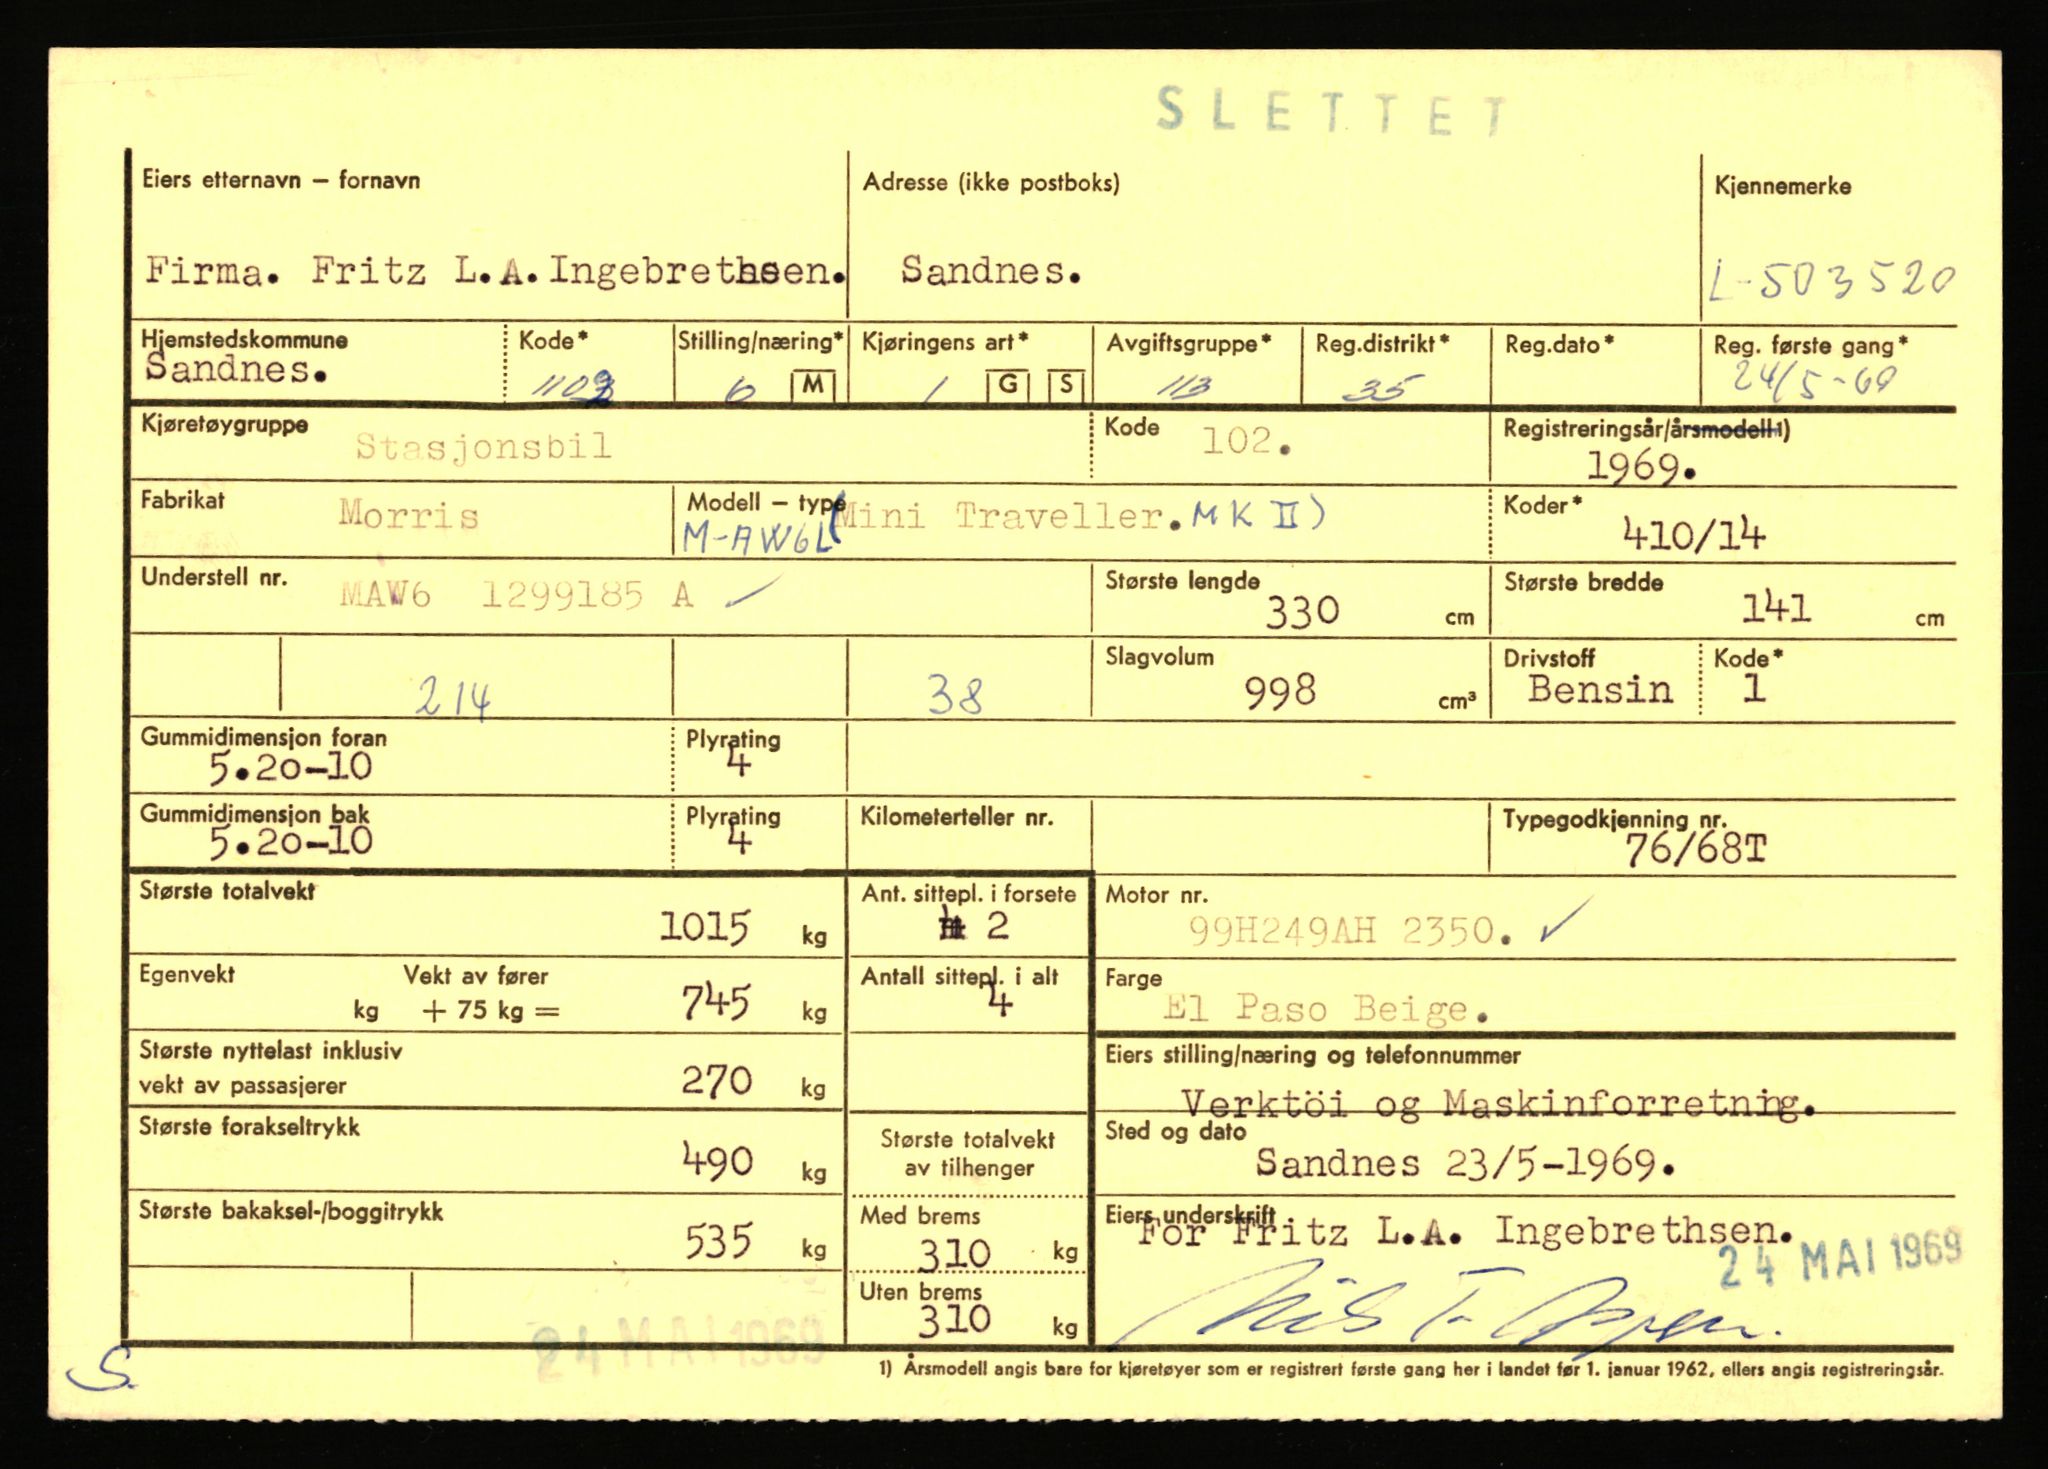 SLETTET
Eiers etternavn – fornavn
Adresse (ikke postboks)
Kjennemerke
Firma. Fritz L.A.Ingebrethsen.
Sandnes.
L-503520
Hjemstedskommune
Kode*
Stilling/næring*
Kjøringens art*
Avgiftsgruppe*
Reg.distrikt*
Reg.dato*
Reg. første gang*
Sandnes.
1102
6
M
1
G
S
113
35
24/5-69
Kjøretøygruppe
Stasjonsbil
Kode
102.
Registreringsår/årsmodell1)
1969.
Fabrikat
Morris
Modell – type
M-AW6L (Mini Traveller. MK II)
Koder*
410/14
Understell nr.
MAW6 1299185 A
Største lengde
330 cm
Største bredde
141 cm
214
38
Slagvolum
998 cm³
Drivstoff
Bensin
Kode*
1
Gummidimensjon foran
5.20-10
Plyrating
4
Gummidimensjon bak
5.20-10
Plyrating
4
Kilometerteller nr.
Typegodkjenning nr.
76/68T
Største totalvekt
1015 kg
Ant. sittepl. i forsete
2
Motor nr.
99H249AH 2350.
Egenvekt
Vekt av fører
kg + 75 kg = 745 kg
Antall sittepl. i alt
4
Farge
El Paso Beige.
Største nyttelast inklusiv
vekt av passasjerer
270 kg
Eiers stilling/næring og telefonnummer
Verktöi og Maskinforretning.
Største forakseltrykk
490 kg
Største totalvekt
av tilhenger
Sted og dato
Sandnes 23/5-1969.
Største bakaksel-/boggitrykk
535 kg
Med brems
310 kg
Eiers underskrift
For Fritz L.A. Ingebrethsen.
24 MAI 1969
Uten brems
310 kg
24 MAI 1969
S.
1) Årsmodell angis bare for kjøretøyer som er registrert første gang her i landet før 1. januar 1962, ellers angis registreringsår.